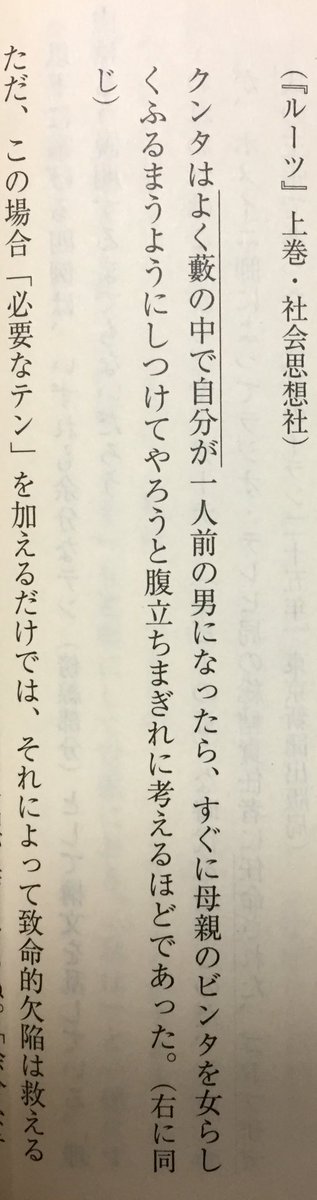 (『ルーツ』上巻・社会思想社)
クンタはよく藪の中で自分が一人前の男になったら、すぐに母親のビンタを女らし
くふるまうようにしつけてやろうと腹立ちまぎれに考えるほどであった。(右に同
じ)
ただ、この場合「必要なテン」を加えるだけでは、それによって致命的欠陥は救える